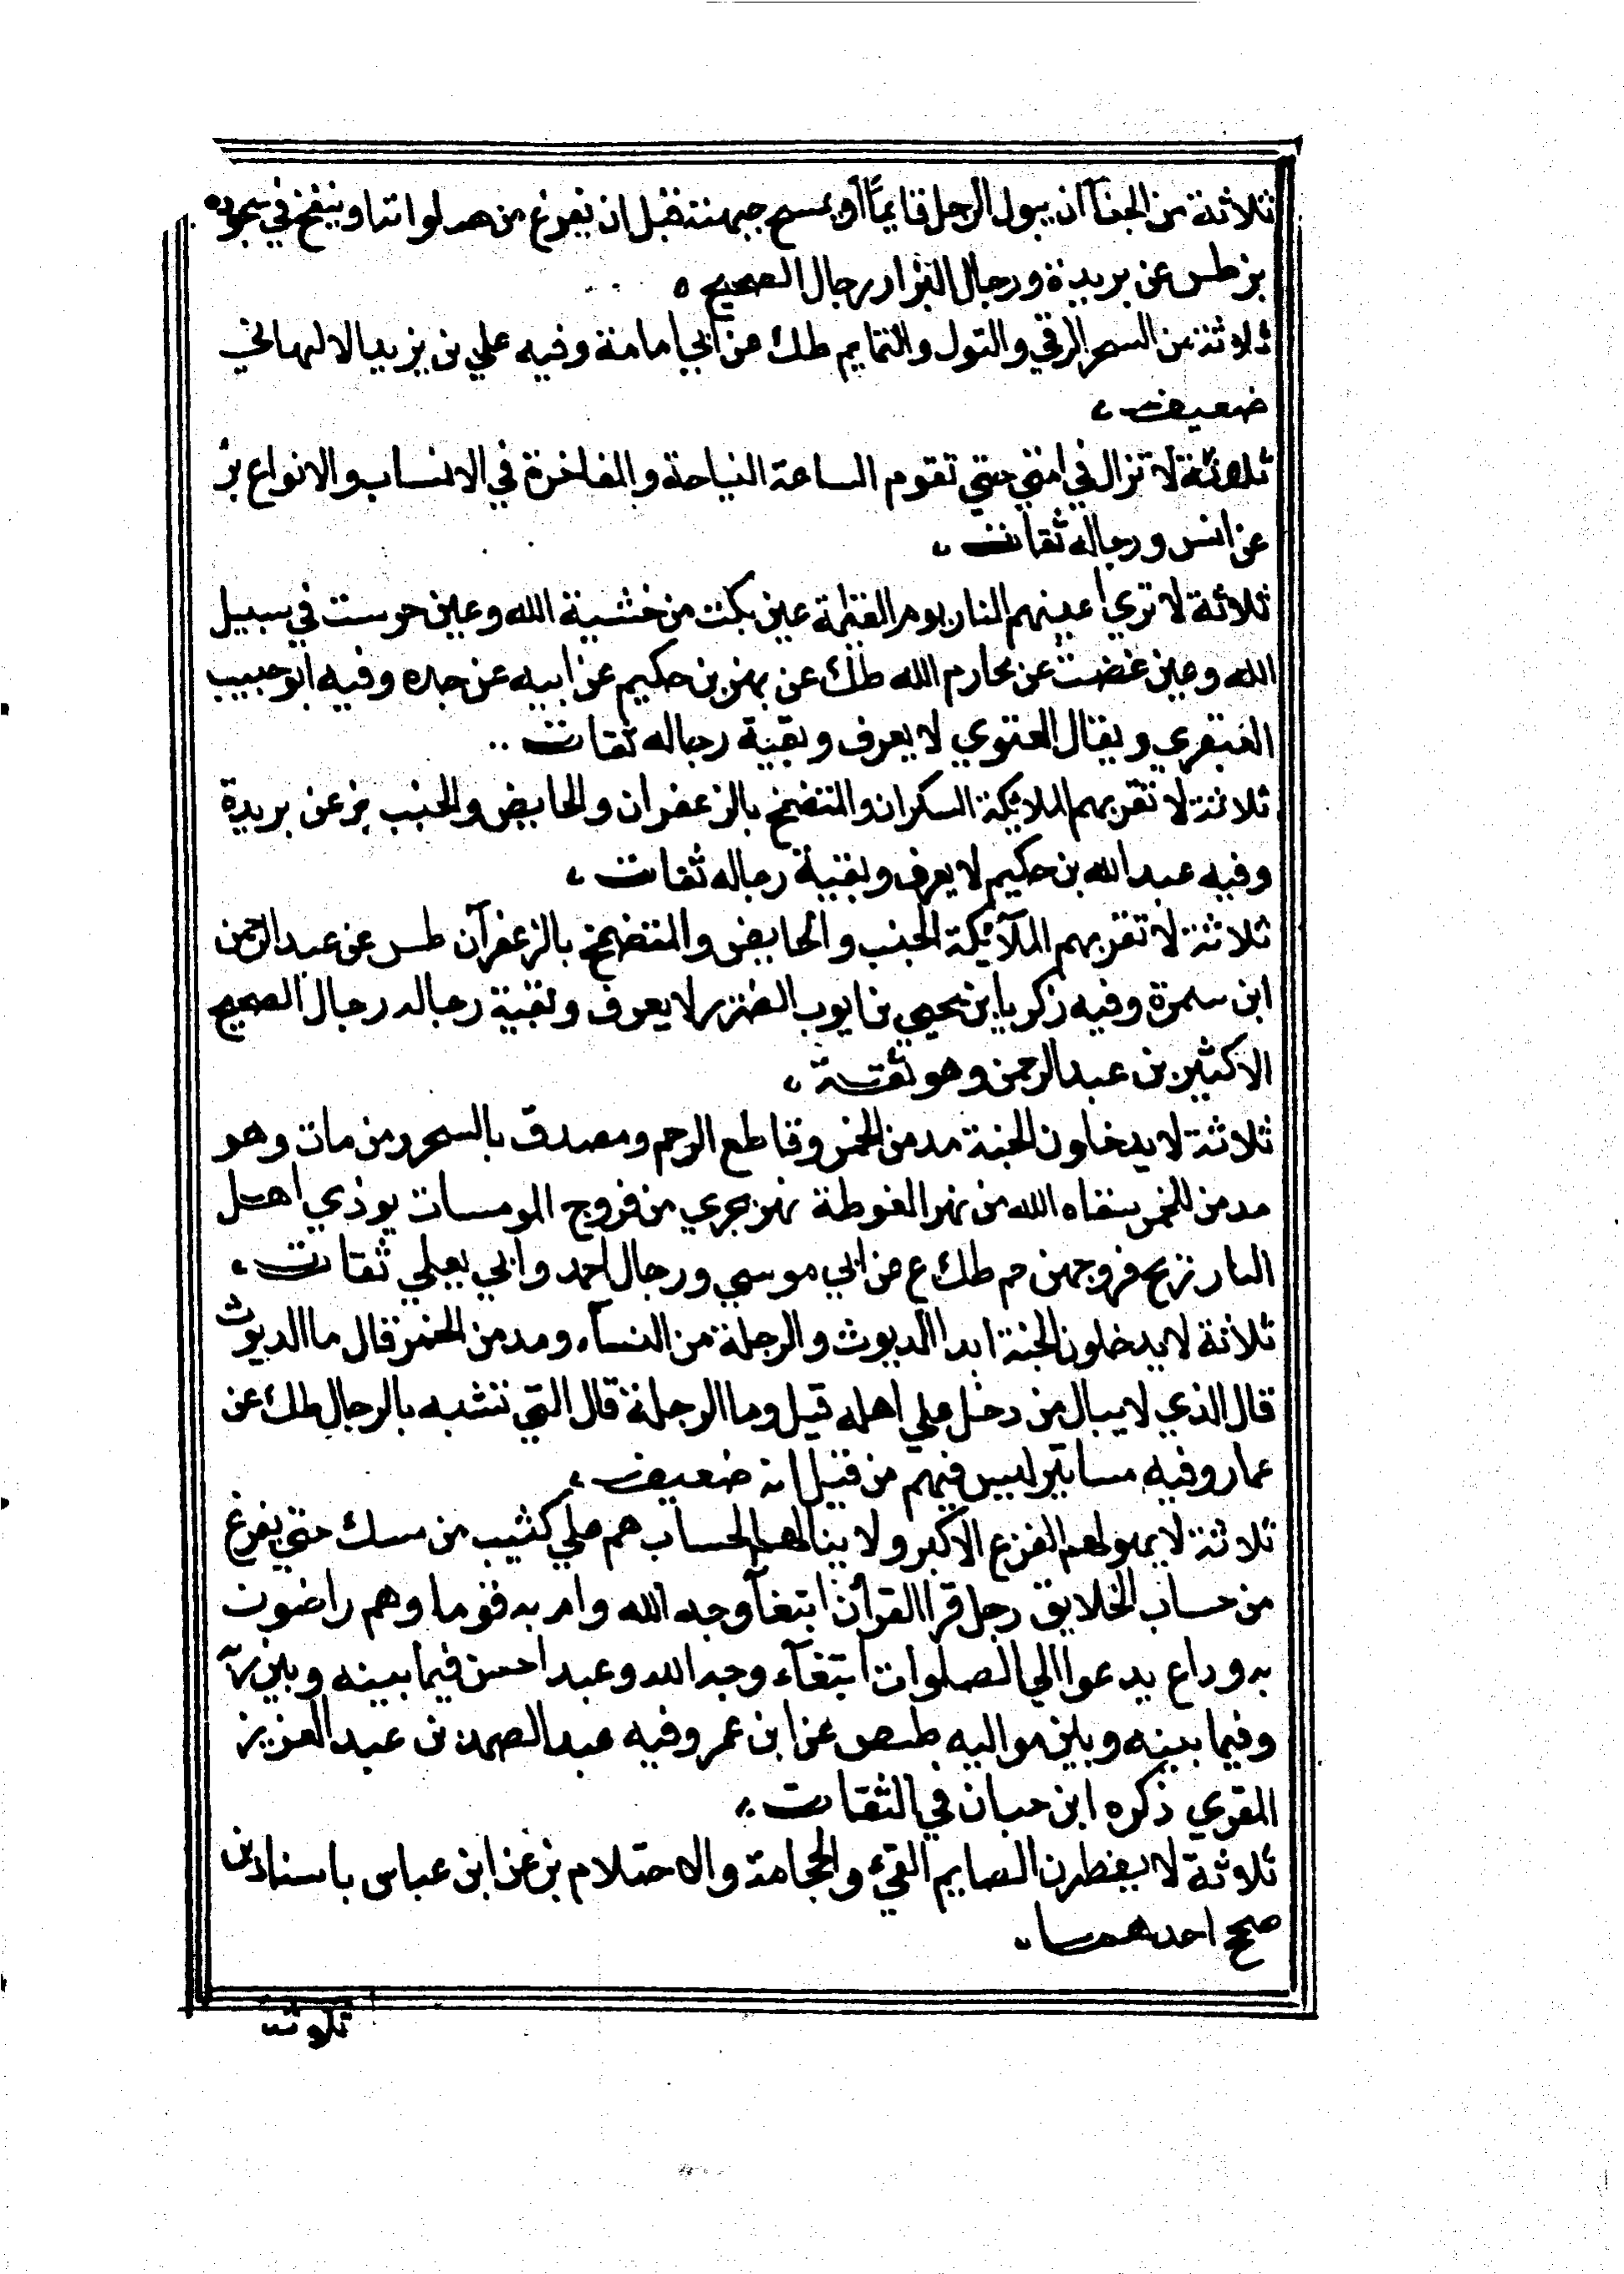 ثلاثة من الجفآ ان يبول الرجل قايمًا أو يمسح جبهته قبل ان يفرغ من صلواته او ينفخ في سجوده
بز طس عن بريدة ورجال البزار رجال الصحيح ه
ثلاثة من السحر الرقي والتول والتمايم طك عن ابي امامة وفيه علي بن يزيد الالهاني
ضعيف ،
ثلاثة لا تزال في امتي حتي تقوم الساعة النياحة والمفاخرة في الانساب والانواع بز
عن انس ورجاله ثقات ،
ثلاثة لا تري اعينهم النار يوم القيمة عين بكت من خشية الله وعين حرست في سبيل
الله وعين غضت عن محارم الله طك عن بهز بن حكيم عن ابيه عن جده وفيه ابو حبيب
العنقري ويقال العنوي لا يعرف وبقية رجاله ثقات ..
ثلاثة لا تقربهم الملائكة السكران والمتضمخ بالزعفران والحايض والجنب بز عن بريدة
وفيه عبد الله بن حكيم لا يعرف وبقية رجاله ثقات ،
ثلاثة لا تقربهم الملآئكة الجنب والحايض والمتضمخ بالزعفرآن طس عن عبد الرحمن
ابن سمرة وفيه زكريا ابن يحيي بن ايوب الضرير لا يعرف وبقية رجاله رجال الصحيح
الا كثير بن عبد الرحمن وهو ثقة ،
ثلاثة لا يدخلون الجنة مدمن الخمر وقاطع الرحم ومصدق بالسحر ومن مات وهو
مدمن للخمر سقاه الله من نهر الغوطة نهر يجري من فروج المومسات يوذي اهل
النار نزيح فروجهن حم طك ع عن ابي موسي ورجال احمد وابي يعلي ثقات ،
ثلاثة لا يدخلون الجنة ابدا الديوث والرجلة من النسآء ومدمن الخمر قال ما الديوث
قال الذي لا يبال من دخل علي اهله قيل وما الرجلة قال التي تتشبه بالرجال طك عن
عمار وفيه مساتير ليس فيهم من قيل انه ضعيف ،
ثلاثة لا يهولهم الفزع الاكبر ولا ينالهم الحساب هم علي كثيب من مسك حتي يفرغ
من حساب الخلايق رجل قرا القرآن ابتغآ وجه الله وام به قوما وهم راضون
به وداع يدعوا الي الصلوات ابتغآء وجه الله وعبد احسن فيما بينه وبين ربه
وفيما بينه وبين مواليه طص عن ابن عمر وفيه عبد الصمد بن عبد العزيز
المقري ذكره ابن حبان في الثقات ..
ثلاثة لا يفطرن الصايم القيء والحجامة والاحتلام بز عن ابن عباس باسنادين
صح احدهما ،
ثلاثة